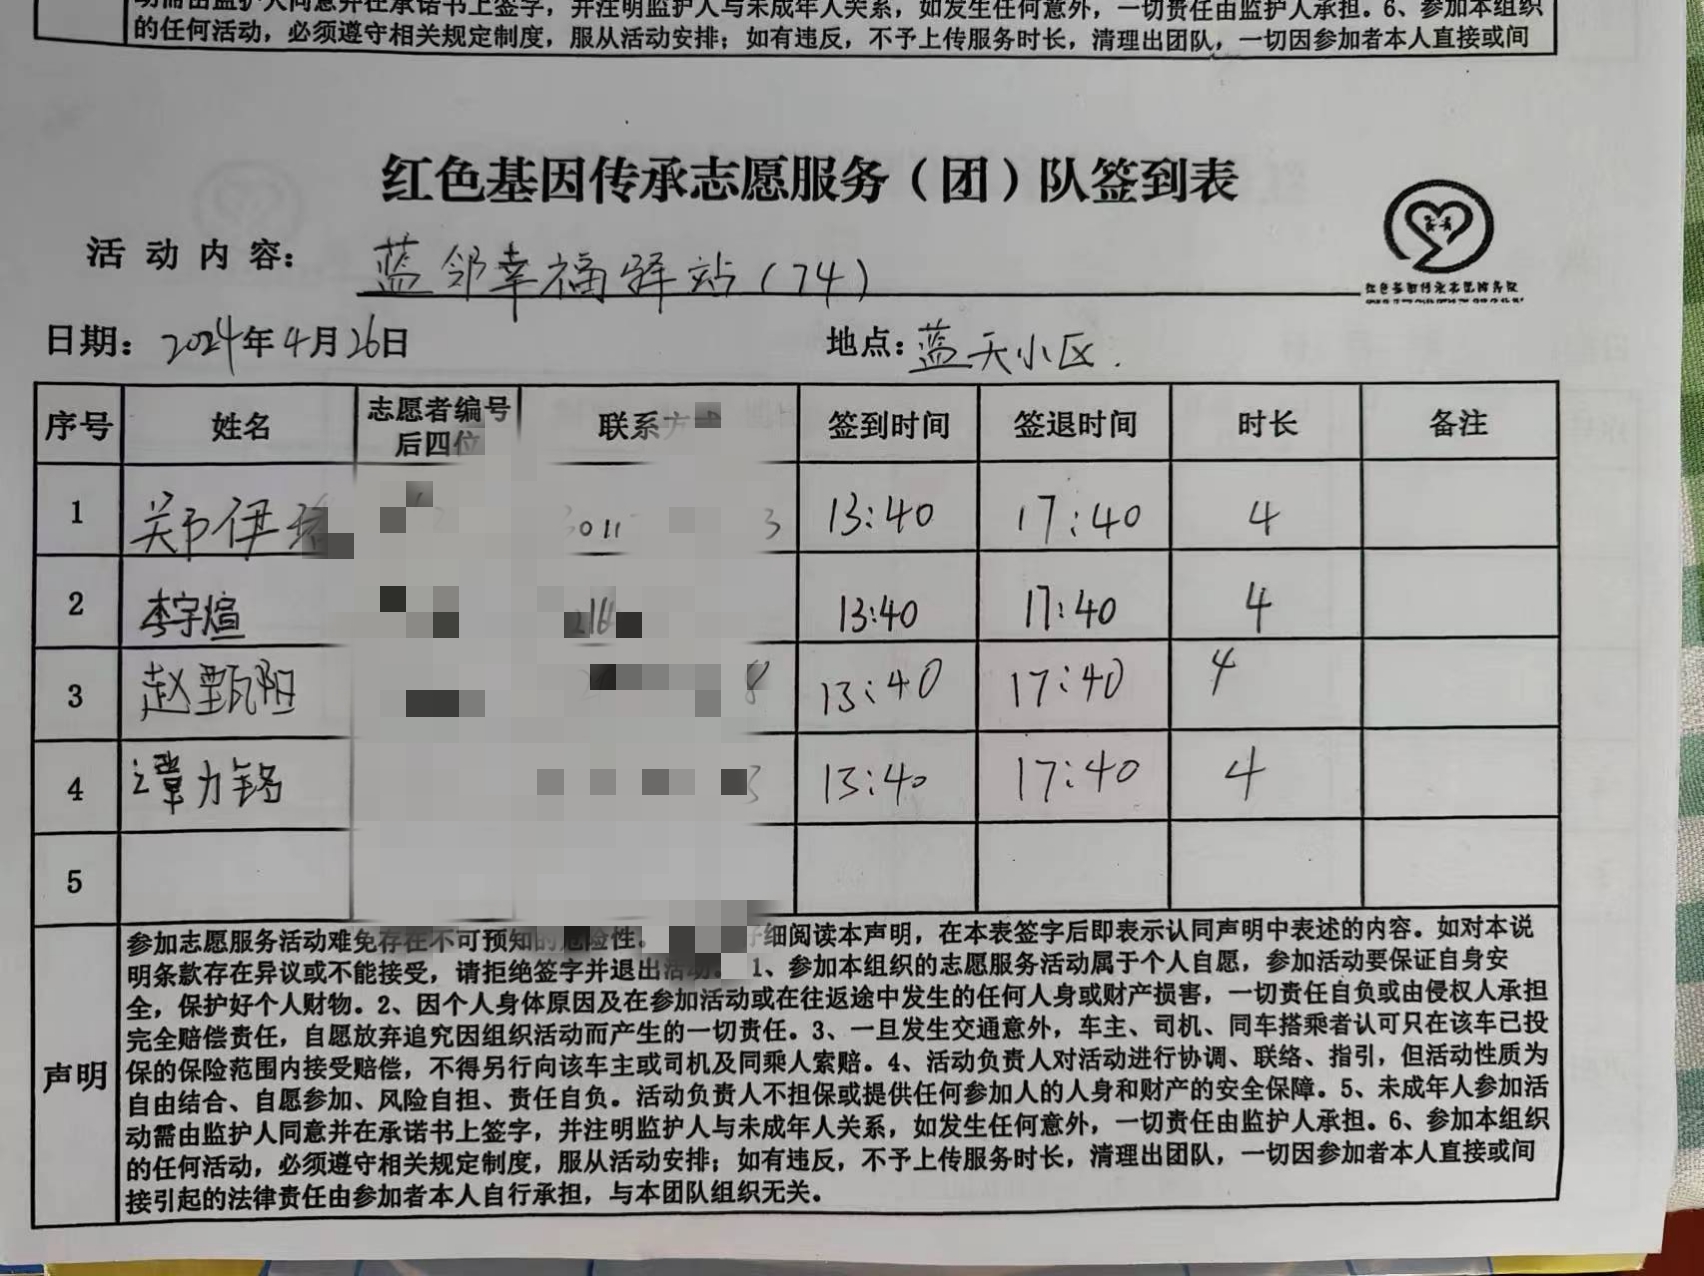 动需由监护人同意并在承诺书上签字，并注明监护人与未成年人关系，如发生任何意外，一切责任由监护人承担。6、参加本组织
的任何活动，必须遵守相关规定制度，服从活动安排；如有违反，不予上传服务时长，清理出团队，一切因参加者本人直接或间
红色基因传承志愿服务（团）队签到表
活动内容：蓝邻幸福驿站（74）
日期：2024年4月26日 地点：蓝天小区.
序号 姓名 志愿者编号后四位 联系方式 签到时间 签退时间 时长 备注
1 郑伊 13:40 17:40 4
2 李宇煊 13:40 17:40 4
3 赵甄阳 13:40 17:40 4
4 谭力铭 13:40 17:40 4
5
声明
参加志愿服务活动难免存在不可预知的危险性。 仔细阅读本声明，在本表签字后即表示认同声明中表述的内容。如对本说
明条款存在异议或不能接受，请拒绝签字并退出活动。 1、参加本组织的志愿服务活动属于个人自愿，参加活动要保证自身安
全，保护好个人财物。2、因个人身体原因及在参加活动或在往返途中发生的任何人身或财产损害，一切责任自负或由侵权人承担
完全赔偿责任，自愿放弃追究因组织活动而产生的一切责任。3、一旦发生交通意外，车主、司机、同车搭乘者认可只在该车已投
保的保险范围内接受赔偿，不得另行向该车主或司机及同乘人索赔。4、活动负责人对活动进行协调、联络、指引，但活动性质为
自由结合、自愿参加、风险自担、责任自负。活动负责人不担保或提供任何参加人的人身和财产的安全保障。5、未成年人参加活
动需由监护人同意并在承诺书上签字，并注明监护人与未成年人关系，如发生任何意外，一切责任由监护人承担。6、参加本组织
的任何活动，必须遵守相关规定制度，服从活动安排；如有违反，不予上传服务时长，清理出团队，一切因参加者本人直接或间
接引起的法律责任由参加者本人自行承担，与本团队组织无关。